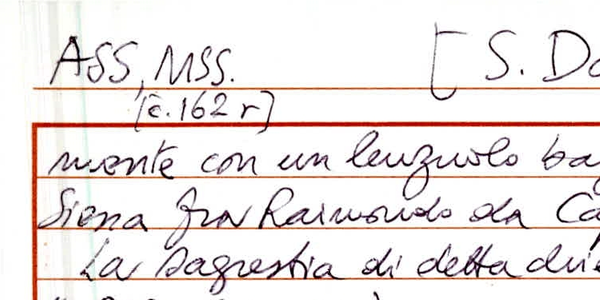 ASS, MSS. [S. Do
[c. 162 r]
mente con un lenzuolo ba
Siena fra Raimondo da Ca
La sagrestia di detta chie